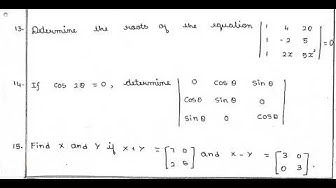 13. Determine the roots of the equation | 1 4 20 |
| 1 -2 5 | = 0
| 1 2x 5x² |
14. If cos 2θ = 0, determine | 0 cosθ sinθ |
| cosθ sinθ 0 |
| sinθ 0 cosθ |
15. Find X and Y if X + Y = [ 7 0 ] and X - Y = [ 3 0 ]
[ 2 5 ] [ 0 3 ]